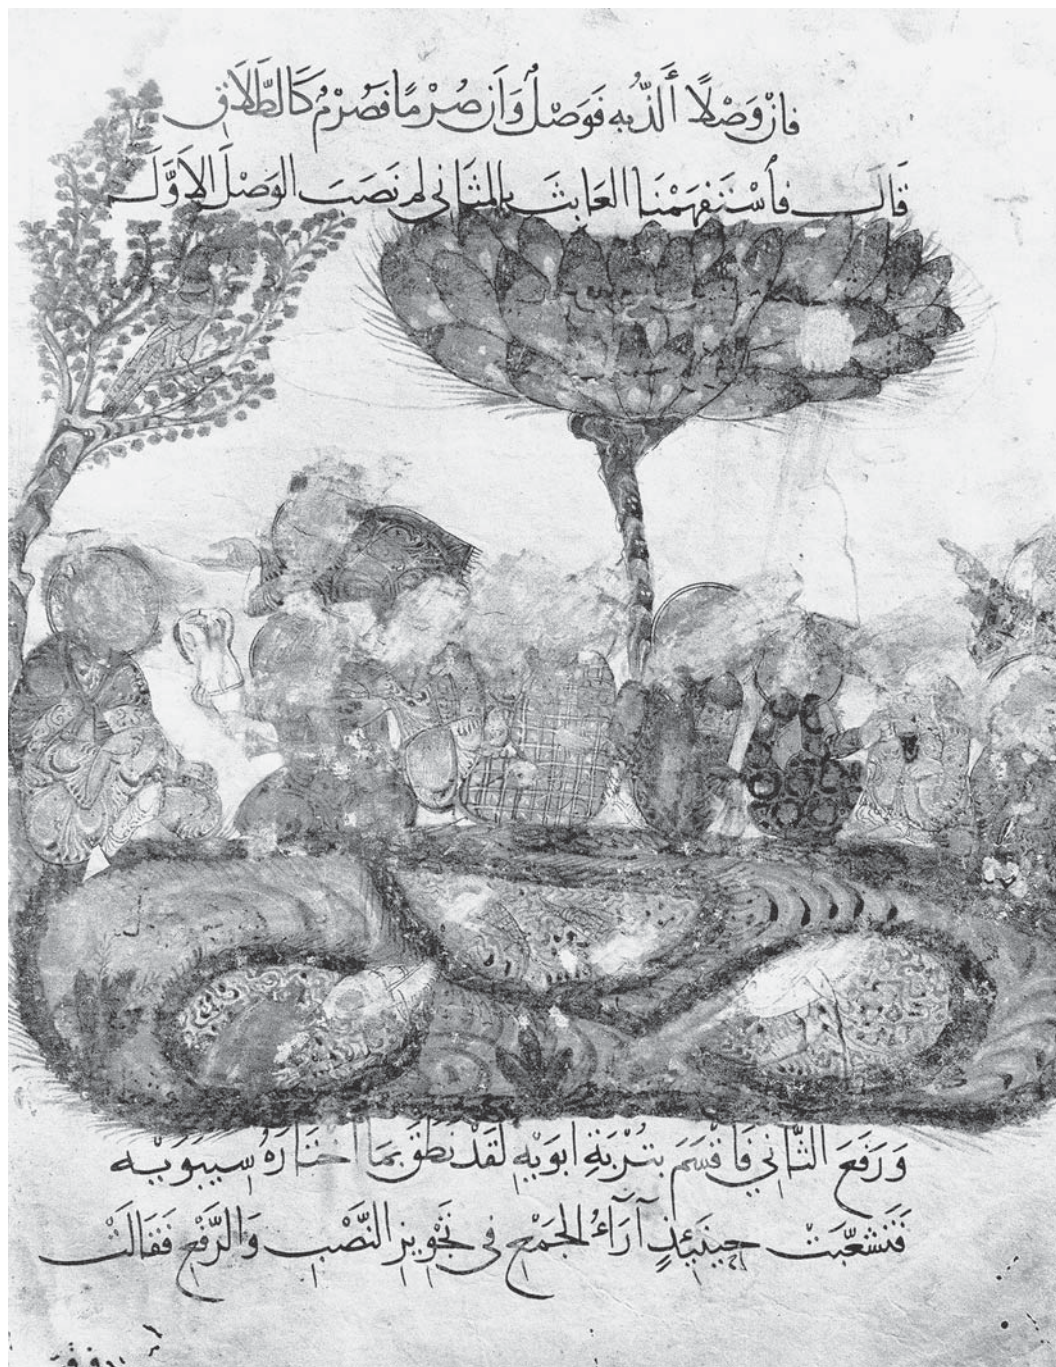 فَاِنْ وَصْلًا أَلَذُّ بِهِ فَوَصْلٌ وَاِنْ صُرْمًا فَصُرْمٌ كَالطَّلَاقِ
قَالَ فَاسْتَفْهَمْنَا العَابِثَ بِالمَثَانِي لِمَ نَصَبَ الوَصْلَ الاَوَّلَ
وَرَفَعَ الثَّانِي فَاَقْسَمَ بِتُرْبَةِ اَبَوَيْهِ لَقَدْ نَطَقَ بِمَا اخْتَارَهُ سِيبَوَيْهِ
فَتَشَعَّبَتْ حِينَئِذٍ آرَاءُ الجَمْعِ فِي تَجْوِيزِ النَّصْبِ وَالرَّفْعِ فَقَالَتْ